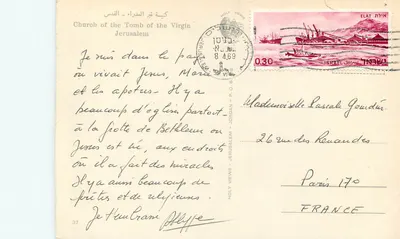 كنيسة قبر العذراء - القدس
Church of the Tomb of the Virgin
Jerusalem
Je suis dans le pays
où vivait Jésus, Marie
et les apôtres. Il y a
beaucoup d'églises partout.
à la grotte de Bethléem où
Jésus est né, aux endroits
où il a fait des miracles
Il y a aussi beaucoup de
prêtres et de religieuses.
Je t'embrasse
ELAT אילת
0.30
ISRAEL
8 4 69
Mademoiselle Pascale
26 rue des Renaudes
Paris 17o
FRANCE